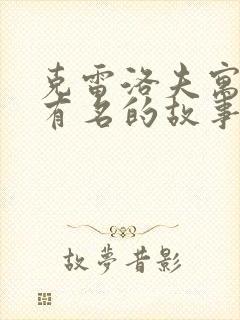 克雷洛夫寓
有名的故事
故夢昔影